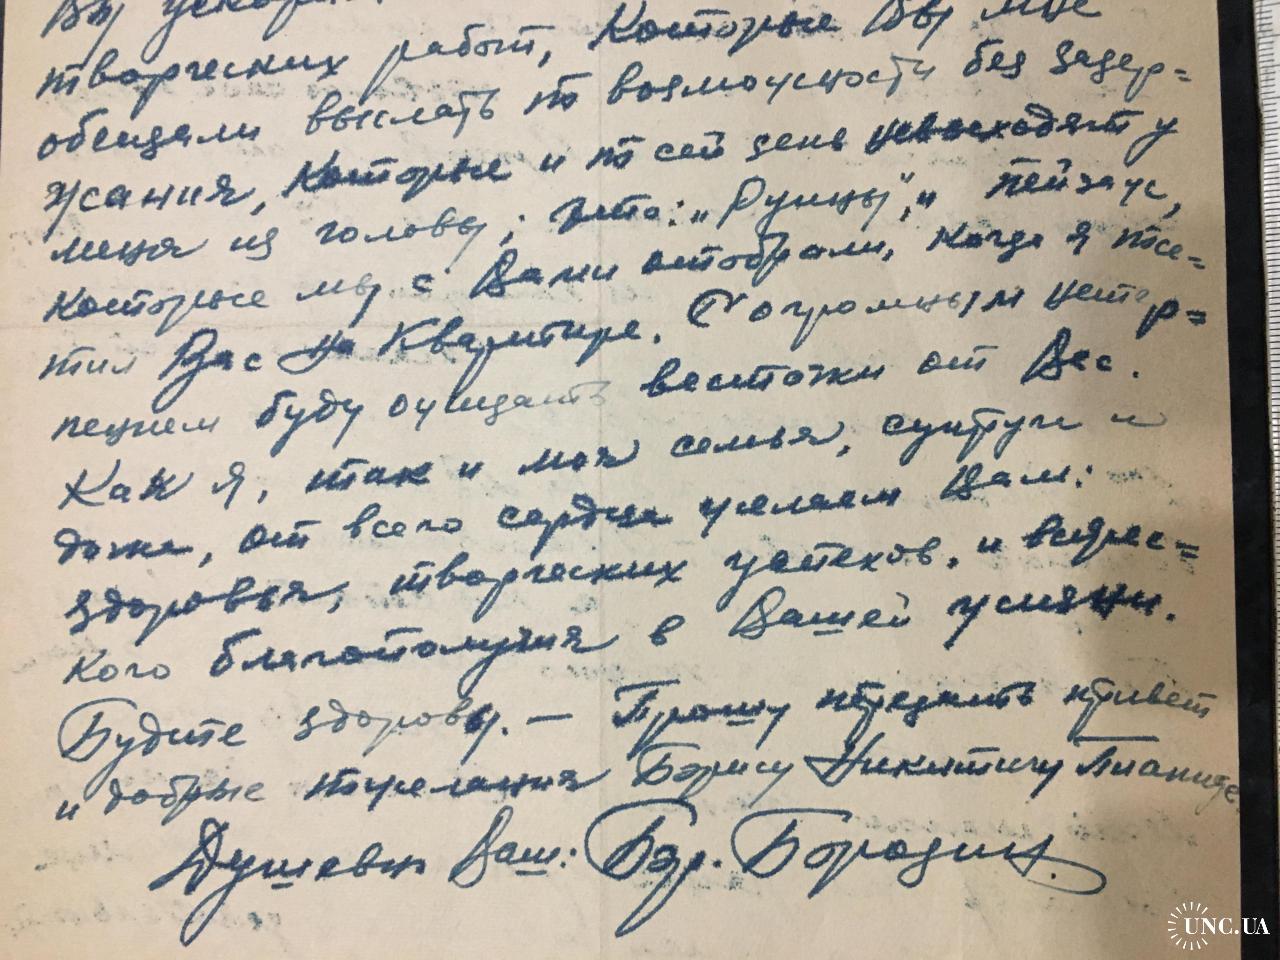 Вы
творческих работ, которые Вы мне
обещали выслать по возможности без задер-
жания, которые и по сей день не выходят у
меня из головы; это: „Руины", и пейзаж,
которые мы с Вами отобрали, когда я посе-
тил Вас на квартире. С огромным нетер-
пением буду ожидать весточки от Вас.
Как я, так и моя семья, супруга и
дочка, от всего сердца желаем Вам:
здоровья, творческих успехов, и всяческ-
кого благополучия в Вашей жизни.
Будите здоровы. — Прошу передать привет
и добрые пожелания Борису Никитичу
Душевно Ваш: Бор. Бородин.
UNC.UA